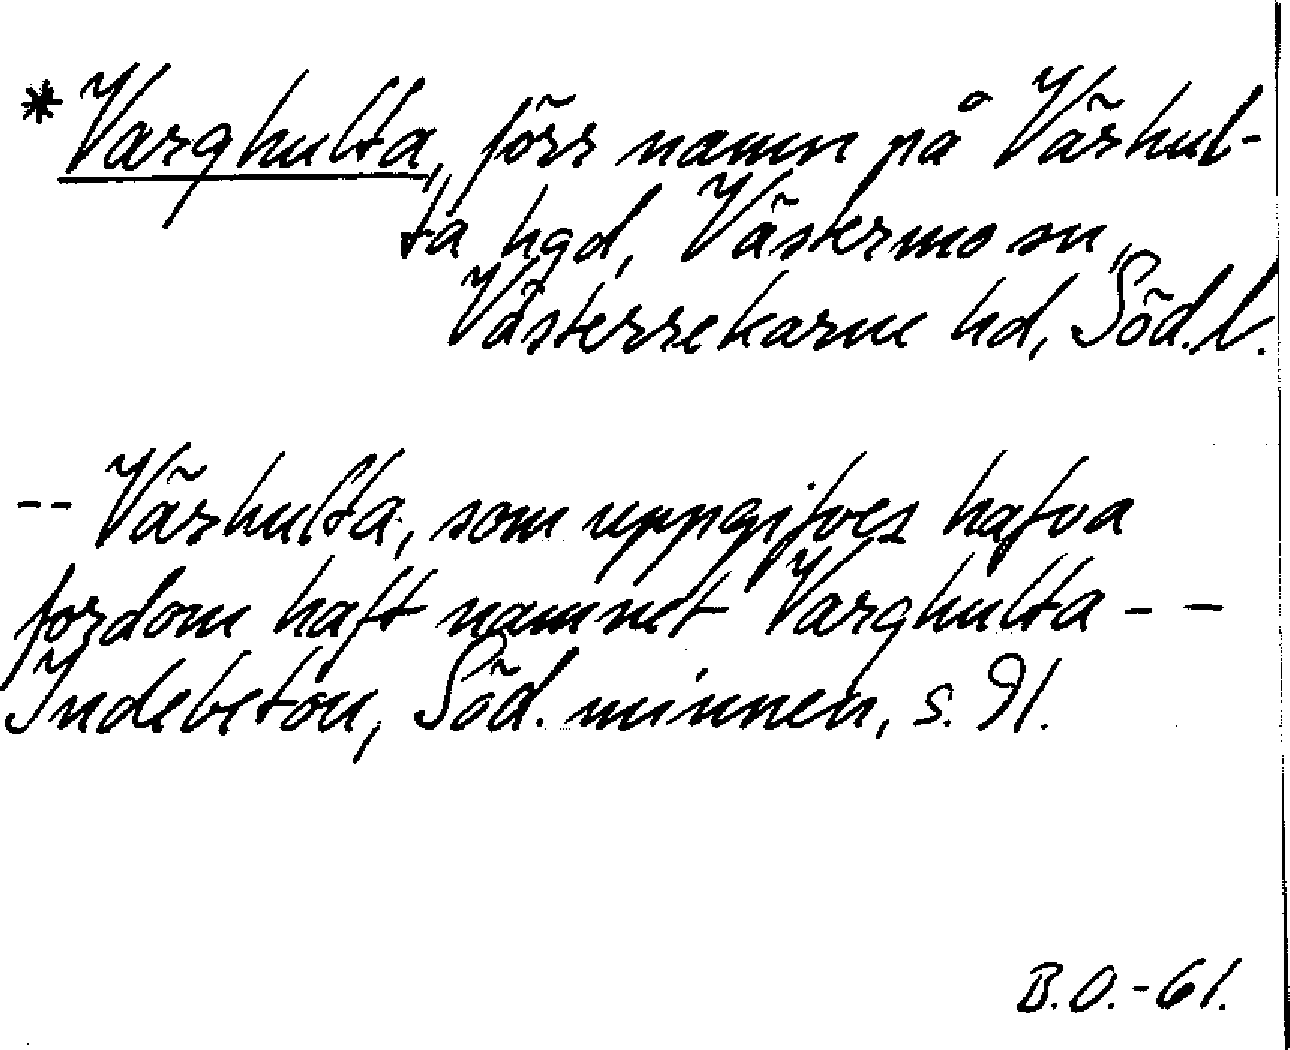 *Varghulta, förr namn på Värhul-
ta hgd, Västermo sn,
Västerrekarne hd, Söd.l.
-- Värhulta, som uppgifves hafva
fordom haft namnet Varghulta --
Indebetou, Söd. minnen, s. 91.
B.O.-61.